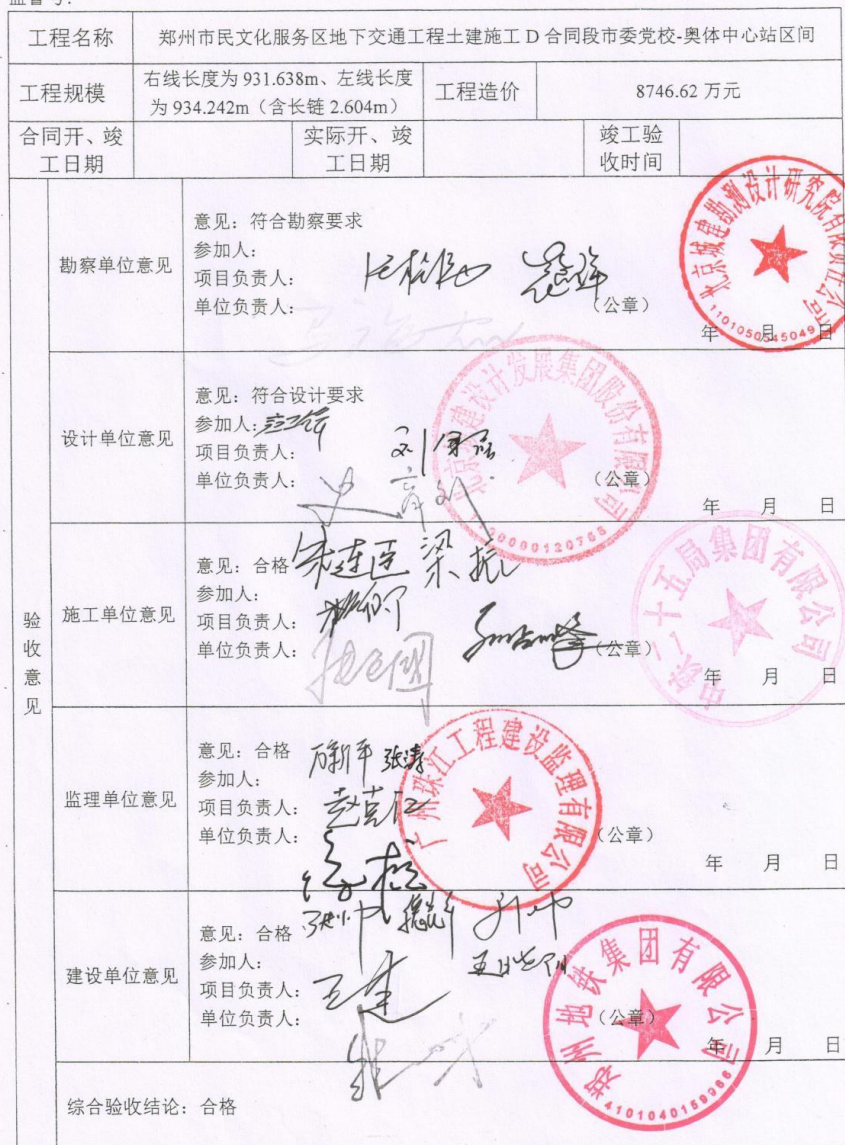 工程名称 郑州市民文化服务区地下交通工程土建施工 D 合同段市委党校-奥体中心站区间
工程规模 右线长度为 931.638m、左线长度
为 934.242m（含长链 2.604m） 工程造价 8746.62 万元
合同开、竣
工日期 实际开、竣
工日期 竣工验
收时间
验收意见
勘察单位意见
意见：符合勘察要求
参加人：
项目负责人：
单位负责人：
（公章）
年 月 日
北京城建勘测设计研究院有限责任公司
设计单位意见
意见：符合设计要求
参加人：
项目负责人：
单位负责人：
（公章）
年 月 日
北京城建设计发展集团股份有限公司
施工单位意见
意见：合格
参加人：
项目负责人：
单位负责人：
（公章）
年 月 日
中铁二十五局集团有限公司
监理单位意见
意见：合格 张涛
参加人：
项目负责人：
单位负责人：
（公章）
年 月 日
广州珠江工程建设监理有限公司
建设单位意见
意见：合格
参加人：
项目负责人：
单位负责人：
（公章）
年 月 日
郑州地铁集团有限公司
综合验收结论：合格